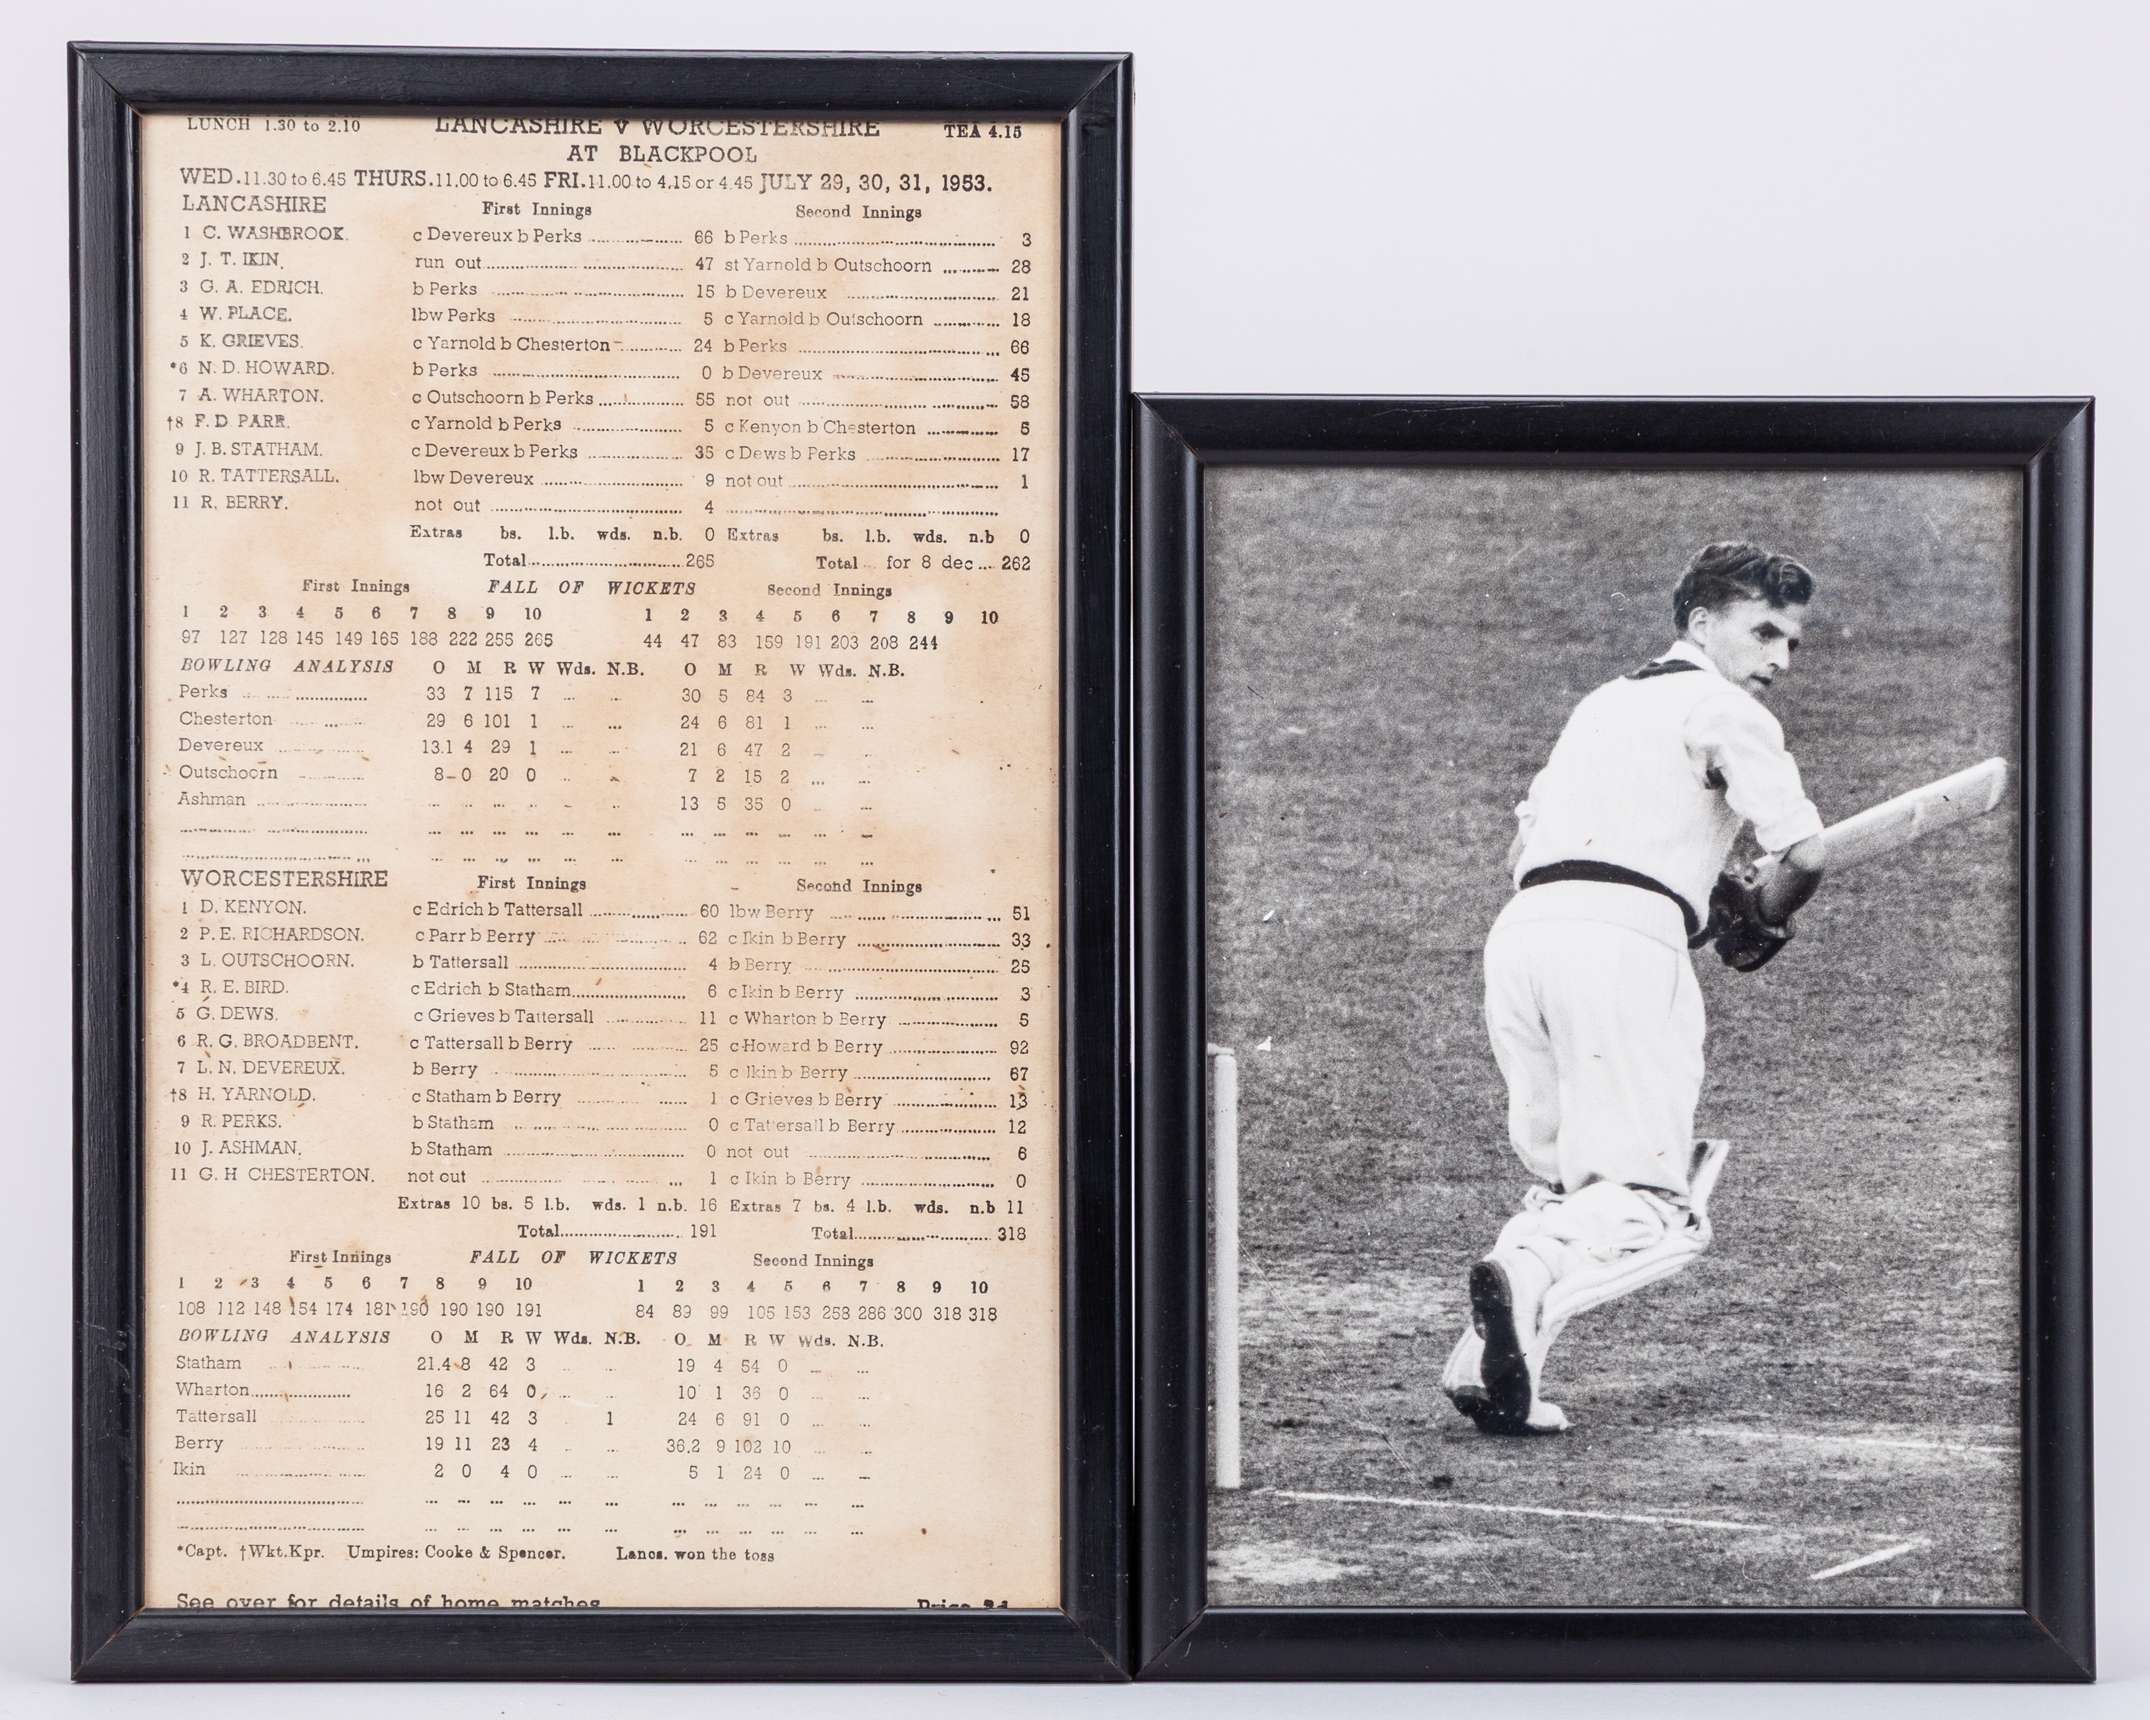 LUNCH 1.30 to 2.10 LANCASHIRE v WORCESTERSHIRE TEA 4.15
AT BLACKPOOL
WED.11.30 to 6.45 THURS.11.00 to 6.45 FRI.11.00 to 4.15 or 4.45 JULY 29, 30, 31, 1953.
LANCASHIRE First Innings Second Innings
1 C. WASHBROOK. c Devereux b Perks 66 b Perks 3
2 J. T. IKIN. run out 47 st Yarnold b Outschoorn 28
3 G. A. EDRICH. b Perks 15 b Devereux 21
4 W. PLACE. lbw Perks 5 c Yarnold b Outschoorn 18
5 K. GRIEVES. c Yarnold b Chesterton 24 b Perks 66
*6 N. D. HOWARD. b Perks 0 b Devereux 45
7 A. WHARTON. c Outschoorn b Perks 55 not out 58
†8 F. D PARR. c Yarnold b Perks 5 c Kenyon b Chesterton 5
9 J. B. STATHAM. c Devereux b Perks 35 c Dews b Perks 17
10 R. TATTERSALL. lbw Devereux 9 not out 1
11 R. BERRY. not out 4
Extras bs. l.b. wds. n.b. 0 Extras bs. l.b. wds. n.b 0
Total 265 Total for 8 dec 262
First Innings FALL OF WICKETS Second Innings
1 2 3 4 5 6 7 8 9 10 1 2 3 4 5 6 7 8 9 10
97 127 128 145 149 165 188 222 255 265 44 47 83 159 191 203 208 244
BOWLING ANALYSIS O M R W Wds. N.B. O M R W Wds. N.B.
Perks 33 7 115 7 30 5 84 3
Chesterton 29 6 101 1 24 6 81 1
Devereux 13.1 4 29 1 21 6 47 2
Outschoorn 8 0 20 0 7 2 15 2
Ashman 13 5 35 0
WORCESTERSHIRE First Innings Second Innings
1 D. KENYON. c Edrich b Tattersall 60 lbw Berry 51
2 P. E. RICHARDSON. c Parr b Berry 62 c Ikin b Berry 33
3 L. OUTSCHOORN. b Tattersall 4 b Berry 25
*4 R. E. BIRD. c Edrich b Statham 6 c Ikin b Berry 3
5 G. DEWS. c Grieves b Tattersall 11 c Wharton b Berry 5
6 R. G. BROADBENT. c Tattersall b Berry 25 c Howard b Berry 92
7 L. N. DEVEREUX. b Berry 5 c Ikin b Berry 67
†8 H. YARNOLD. c Statham b Berry 1 c Grieves b Berry 13
9 R. PERKS. b Statham 0 c Tattersall b Berry 12
10 J. ASHMAN. b Statham 0 not out 6
11 G. H CHESTERTON. not out 1 c Ikin b Berry 0
Extras 10 bs. 5 l.b. wds. 1 n.b. 16 Extras 7 bs. 4 l.b. wds. n.b 11
Total 191 Total 318
First Innings FALL OF WICKETS Second Innings
1 2 3 4 5 6 7 8 9 10 1 2 3 4 5 6 7 8 9 10
108 112 148 154 174 181 190 190 190 191 84 89 99 105 153 258 286 300 318 318
BOWLING ANALYSIS O M R W Wds. N.B. O M R W Wds. N.B.
Statham 21.4 8 42 3 19 4 54 0
Wharton 16 2 64 0 10 1 36 0
Tattersall 25 11 42 3 1 24 6 91 0
Berry 19 11 23 4 36.2 9 102 10
Ikin 2 0 4 0 5 1 24 0
*Capt. †Wkt.Kpr. Umpires: Cooke & Spencer. Lancs. won the toss
See over for details of home matches Price